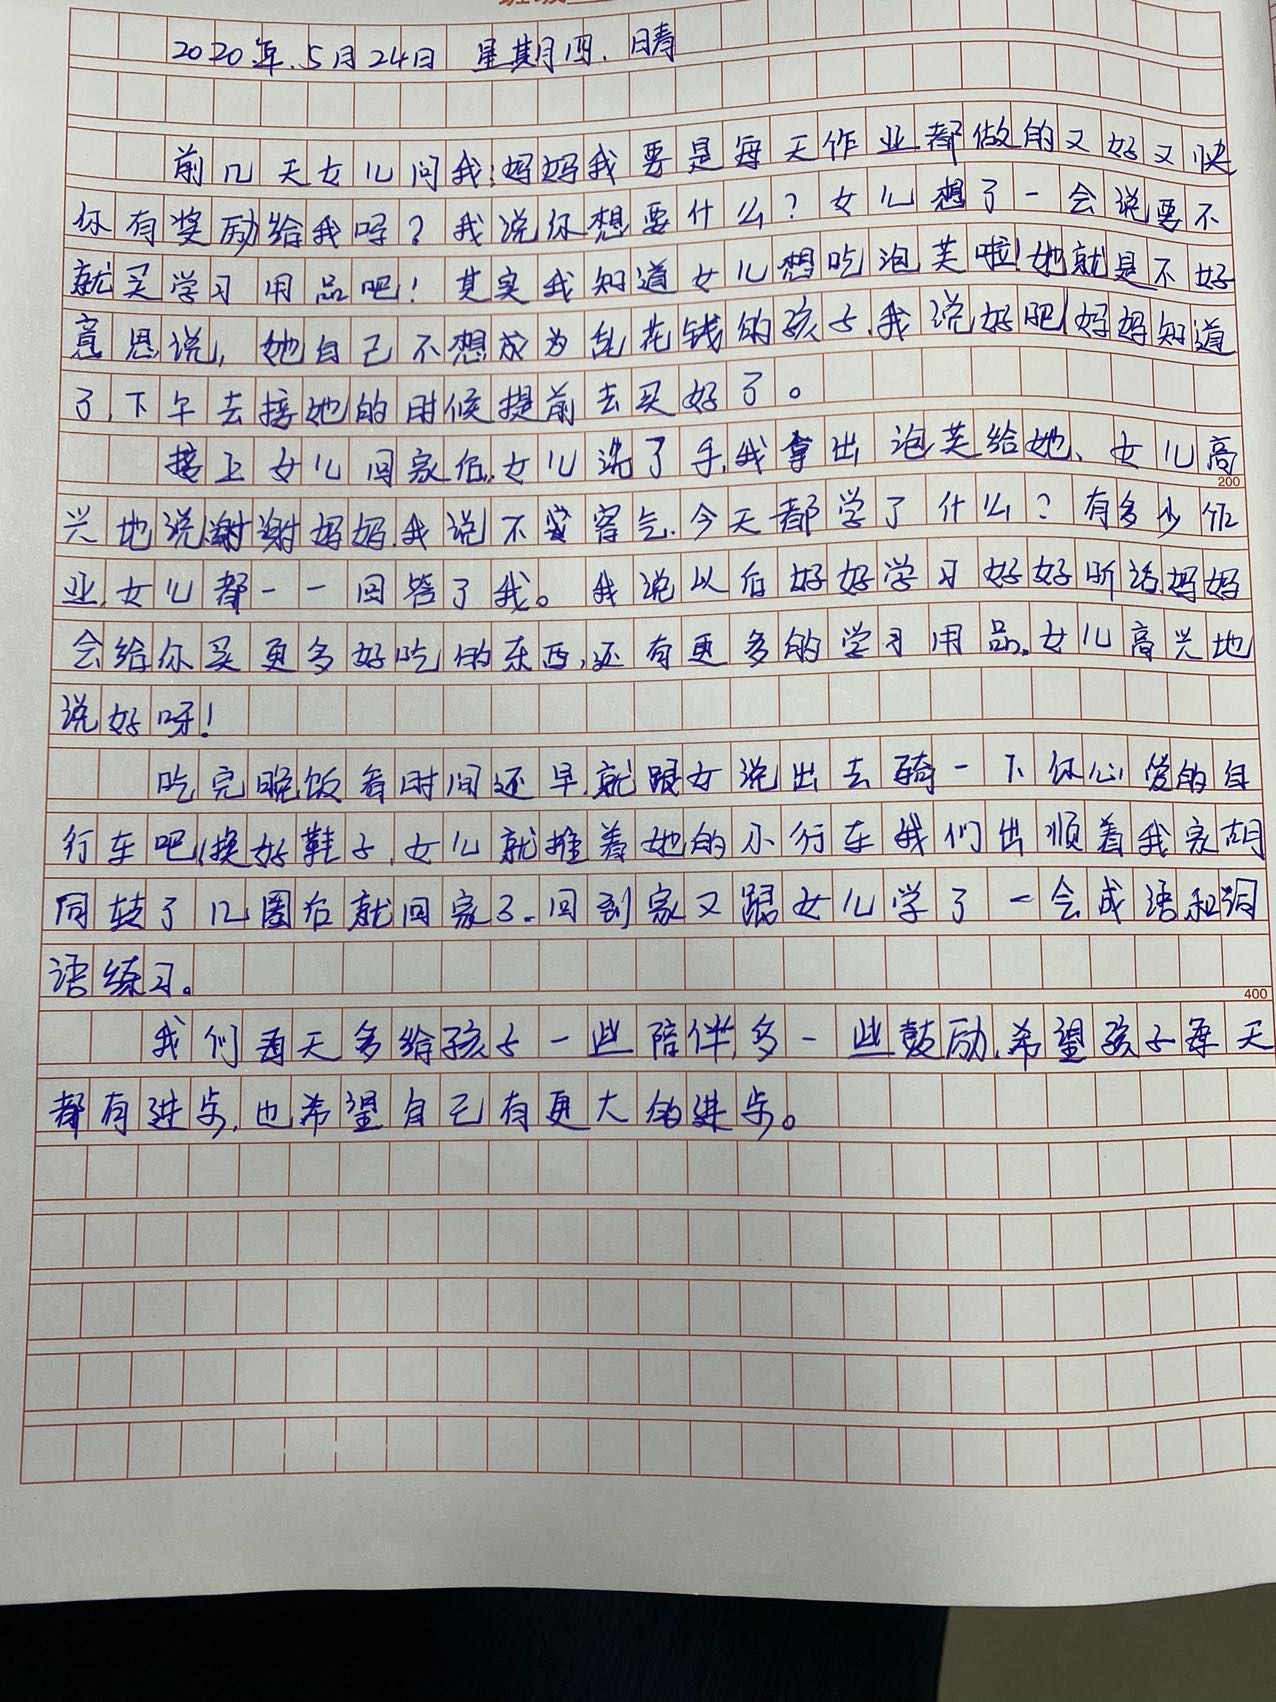 2020年.5月24日 星期四.晴
前几天女儿问我:妈妈我要是每天作业都做的又好又快
你有奖励给我吗?我说你想要什么?女儿想了一会说要不
就买学习用品吧!其实我知道女儿想吃泡芙啦!她就是不好
意思说,她自己不想成为乱花钱的孩子.我说好吧!妈妈知道
了,下午去接她的时候提前去买好了。
接上女儿回家后,女儿洗了手,我拿出泡芙给她、女儿高
200
兴地说谢谢妈妈.我说不客气.今天都学了什么?有多少作
业,女儿都一一回答了我。我说以后好好学习好好听话,妈妈
会给你买更多好吃的东西,还有更多的学习用品.女儿高兴地
说好呀!
吃完晚饭看时间还早,就跟女说出去骑一下你心爱的自
行车吧!换好鞋子,女儿就推着她的小行车我们出顺着我家胡
同转了几圈后就回家了.回到家又跟女儿学了一会成语和词
语练习。
400
我们每天多给孩子一些陪伴,多一些鼓励,希望孩子每天
都有进步,也希望自己有更大的进步。